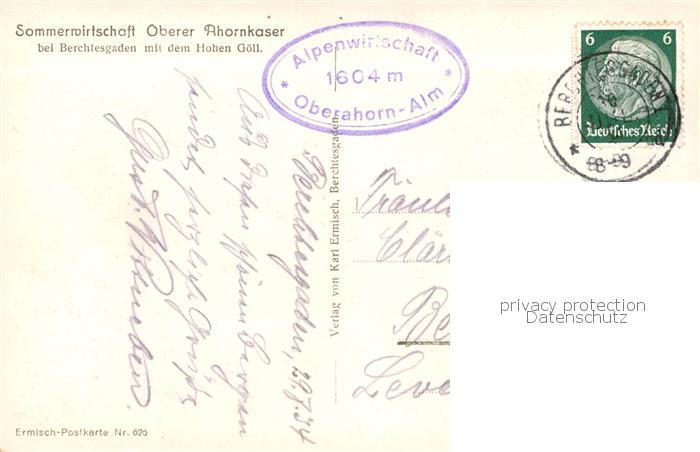 Sommerwirtschaft Oberer Ahornkaser
bei Berchtesgaden mit dem Hohen Göll.
* Alpenwirtschaft *
1604 m
Oberahorn-Alm
6 6
Deutsches Reich
BERCHTESGADEN
8-9
Berchtesgaden, 29.7.34
Aus
sendet herzliche
Verlag von Karl Ermisch, Berchtesgaden.
Fräul
Clär
Be
Leve
privacy protection
Datenschutz
Ermisch-Postkarte Nr. 626